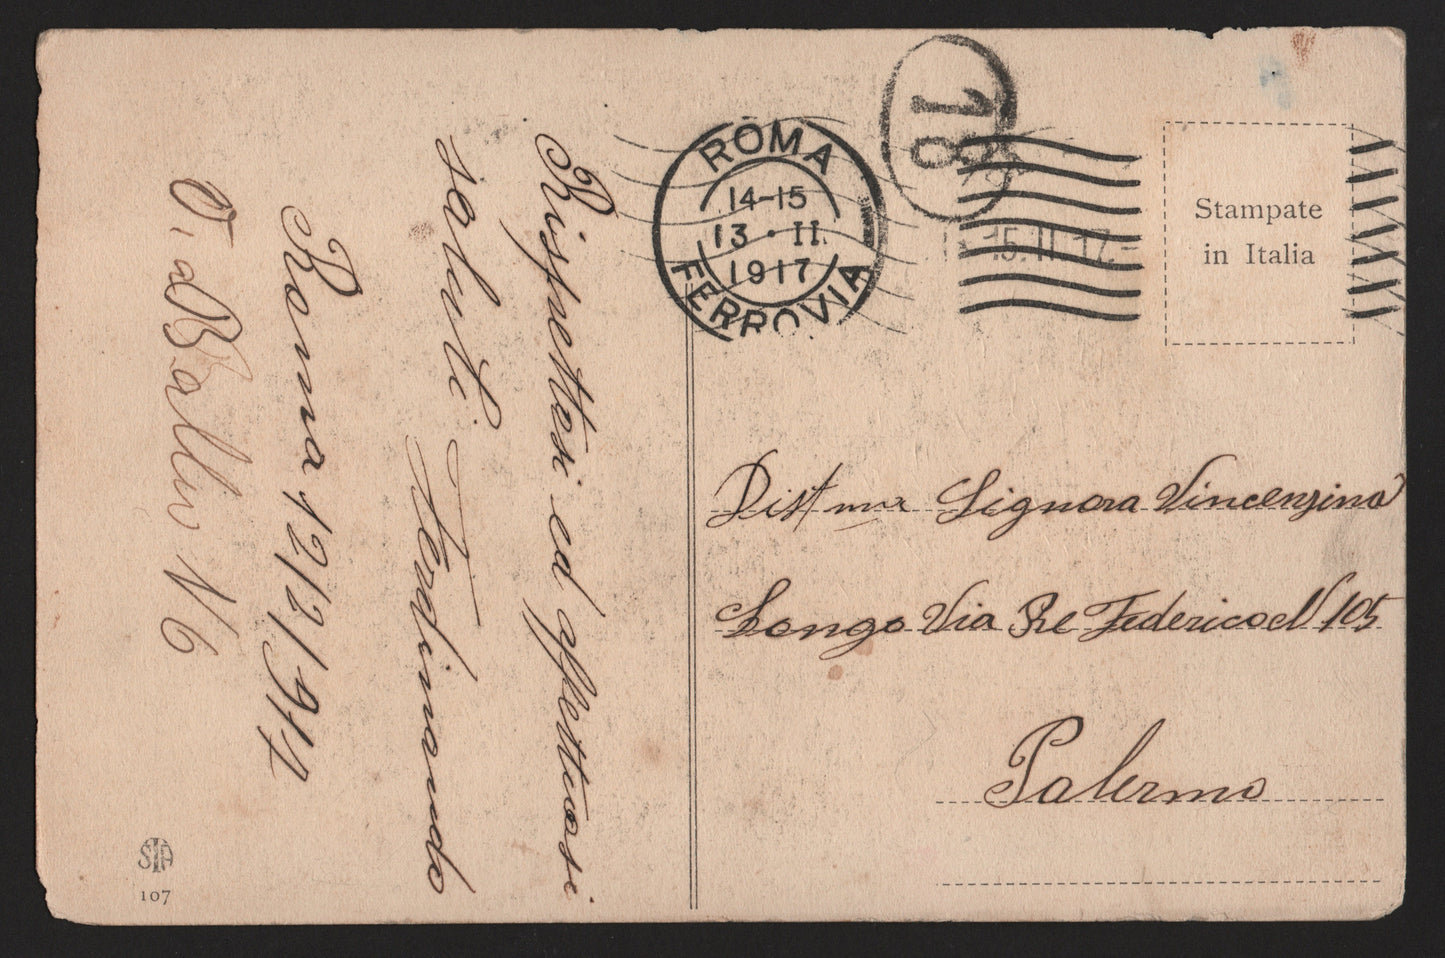 Rispettosi ed affettuosi
saluti Ferdinando
Roma 12/2/1917
N 6
ROMA
14-15
13 · II
1917
FERROVIA
18
15.II.17.
Stampate
in Italia
Distma Signora Vincenzina
Longo Via Re Federico N 105
Palermo
STA
107